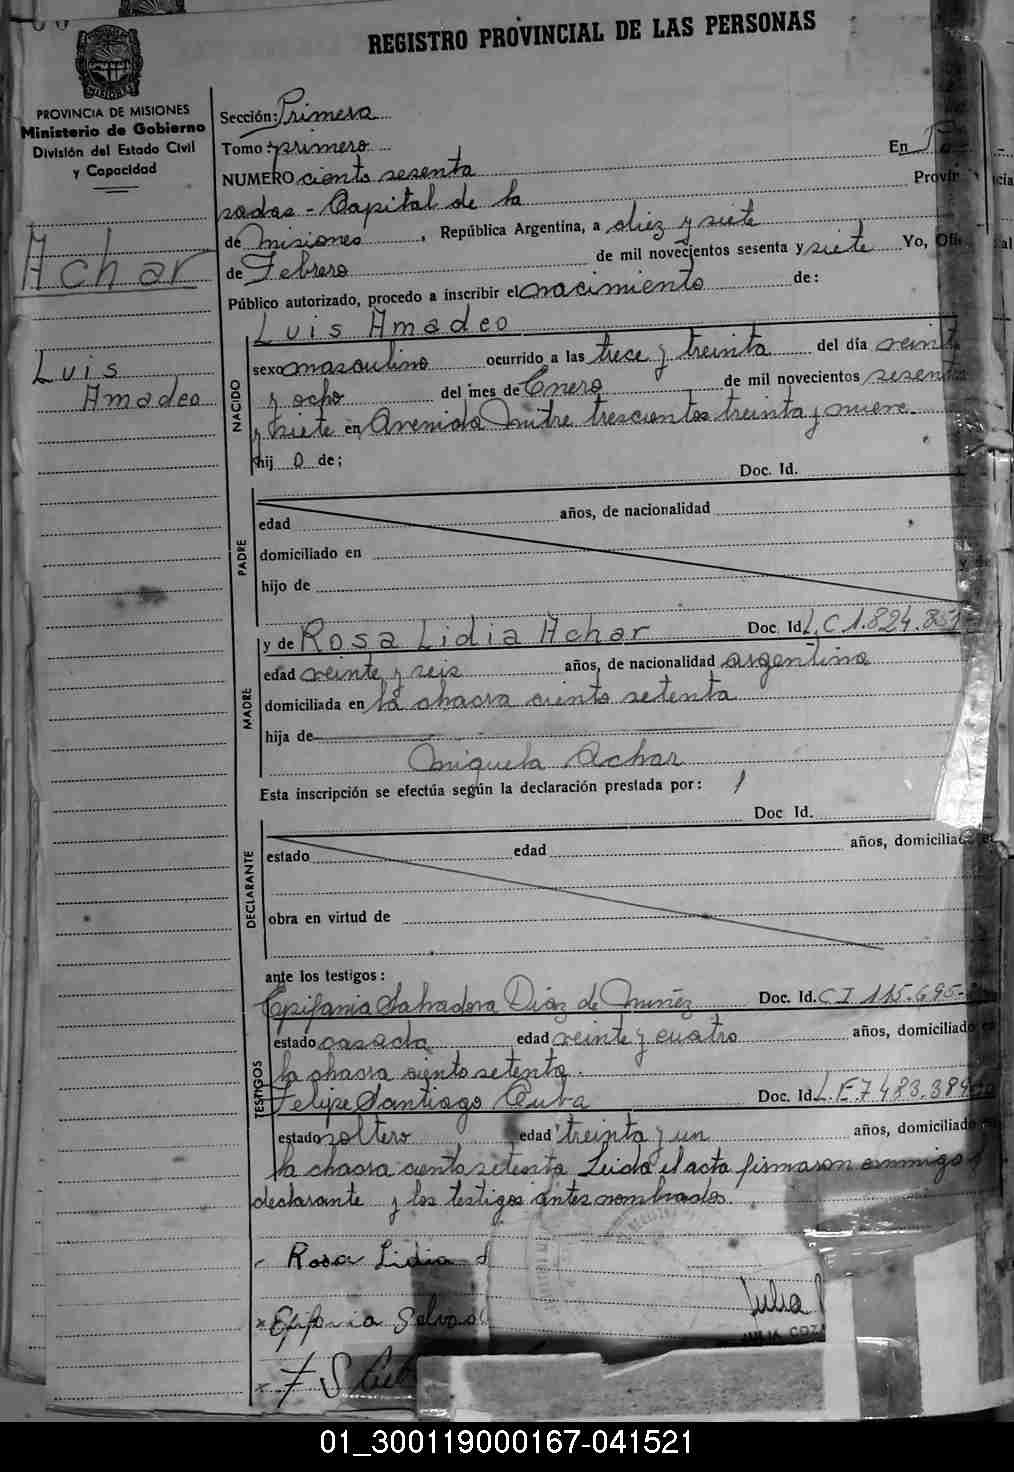 REGISTRO PROVINCIAL DE LAS PERSONAS
MISIONES
PROVINCIA DE MISIONES
Ministerio de Gobierno
División del Estado Civil
y Capacidad
Achar
Luis
Amadeo
Sección: Primera
Tomo: primero En Po-
NUMERO ciento sesenta
sadas - Capital de la Provin
de Misiones, República Argentina, a diez y siete
de Febrero de mil novecientos sesenta y siete Yo, Ofi
Público autorizado, procedo a inscribir el nacimiento de:
Luis Amadeo
NACIDO
sexo masculino ocurrido a las trece y treinta del día veint
y ocho del mes de Enero de mil novecientos sesenta
y siete en Avenida Mitre trescientos treinta y nueve.
hij o de;
Doc. Id.
PADRE
edad años, de nacionalidad
domiciliado en
hijo de
y de
MADRE
y de Rosa Lidia Achar Doc. Id. L.C 1.824.851
edad veinte y seis años, de nacionalidad argentina
domiciliada en la chacra ciento setenta
hija de
Miquela Achar
Esta inscripción se efectúa según la declaración prestada por:
Doc. Id.
DECLARANTE
estado edad años, domiciliad
obra en virtud de
ante los testigos:
TESTIGOS
Epifania Salvadora Diaz de Nuñez Doc. Id. C I 115.695-
estado casada edad veinte y cuatro años, domiciliado
la chacra ciento setenta.
Felipe Santiago Cuba Doc. Id. L.E 7.483.389
estado soltero edad treinta y un años, domiciliado
la chacra ciento setenta Leida el acta firmaron conmigo
declarante y los testigos antes nombrados.
Rosa Lidia
Epifania Salvad
Julia
JULIA COZ
F S Cub
01_300119000167-041521